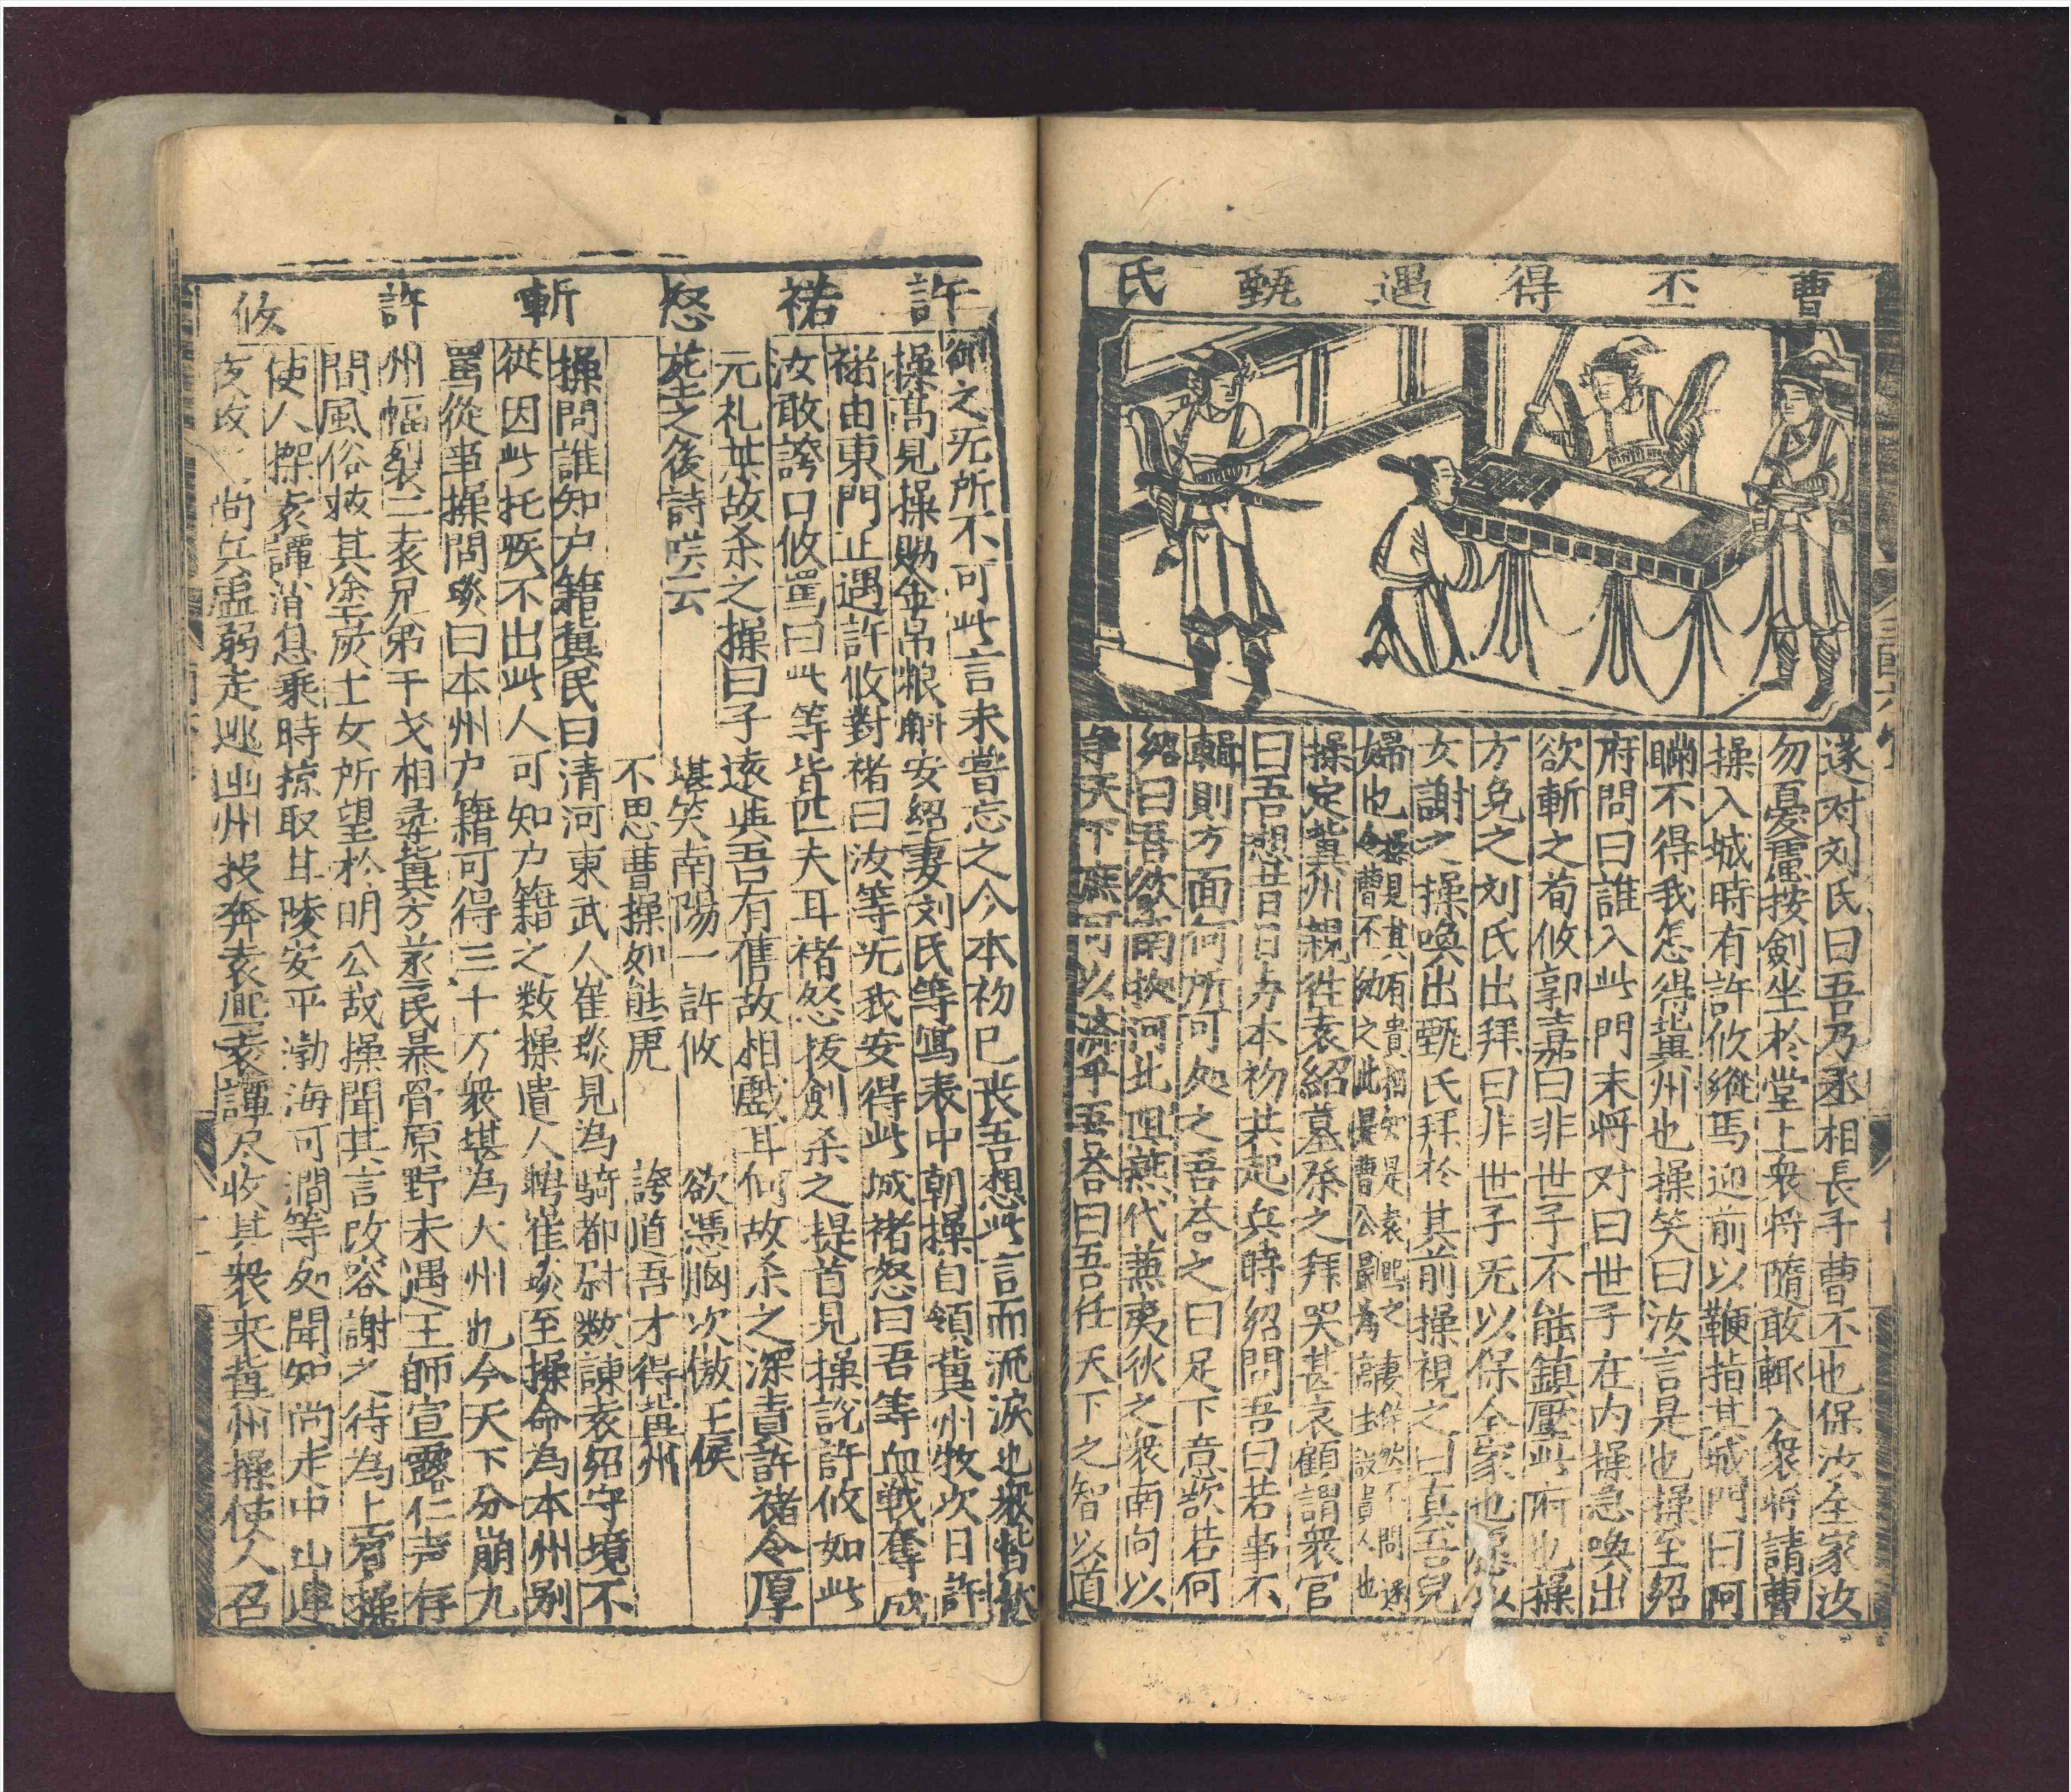 曹丕得遇甄氏
遂对刘氏曰吾乃丞相長子曹丕也保汝全家汝
勿憂慮按劍坐於堂上衆将隨敢輒入衆将請曹
操入城時有許攸縱馬迎前以鞭指其城門曰阿
瞞不得我怎得冀州也操笑曰汝言是也操至紹
府問曰誰入此門末将对曰世子在内操急喚出
欲斬之荀攸郭嘉曰非世子不能鎮壓此府也操
方免之刘氏出拜曰非世子无以保全家也愿以
女謝之操喚出甄氏拜於其前操視之曰真吾兒
婦也操見其有貴相知是袁熙之妻佯然不問遂
令曹丕納之此是曹公最為高主設貴人也
操定冀州親徃袁紹墓祭之拜哭甚哀顧謂衆官
曰吾想昔日與本初共起兵時紹問吾曰若事不
輯則方面何所可処之吾荅之曰足下意欲若何
紹曰吾欲南拠河北阻燕代兼夷狄之衆南向以
争天下庶可以濟乎吾荅曰吾任天下之智以道
許禇怒斬許攸
御之无所不可此言未嘗忘之今本初已丧吾想此言而流淚也衆皆
操高見操賜金帛粮斛安紹妻刘氏等寫表中朝操自領冀州牧次日許
禇由東門正遇許攸對禇曰汝等无我安得此城禇怒曰吾等血戦奪成
汝敢誇口攸罵曰此等皆匹夫耳禇怒抜劍杀之提首見操說許攸如此
元礼某故杀之操曰子遠與吾有舊故相戲耳何故杀之深責許禇令厚
塟之後詩嘆云
堪笑南陽一許攸　欲憑胸次傲王侯
不思曹操如能虎　誇道吾才得冀州
操問誰知户籍冀民曰清河東武人崔琰見為騎都尉数諫袁紹守境不
從因此托疾不出此人可知户籍之数操遣人聘崔琰至操命為本州别
駕從事操問琰曰本州户籍可得三十万衆堪為大州也今天下分崩九
州幅裂二袁兄弟干戈相尋冀方蒸民暴骨原野未遇王師宣露仁声存
問風俗救其塗炭士女所望於明公哉操聞其言改容謝之待為上賓操
使人探袁譚消息乗時掠取甘陵安平渤海河澗等処聞知尚走中山連
夜攻 尚兵盡弱走逃幽州投奔袁熙袁譚尽收其衆来冀州操使人召